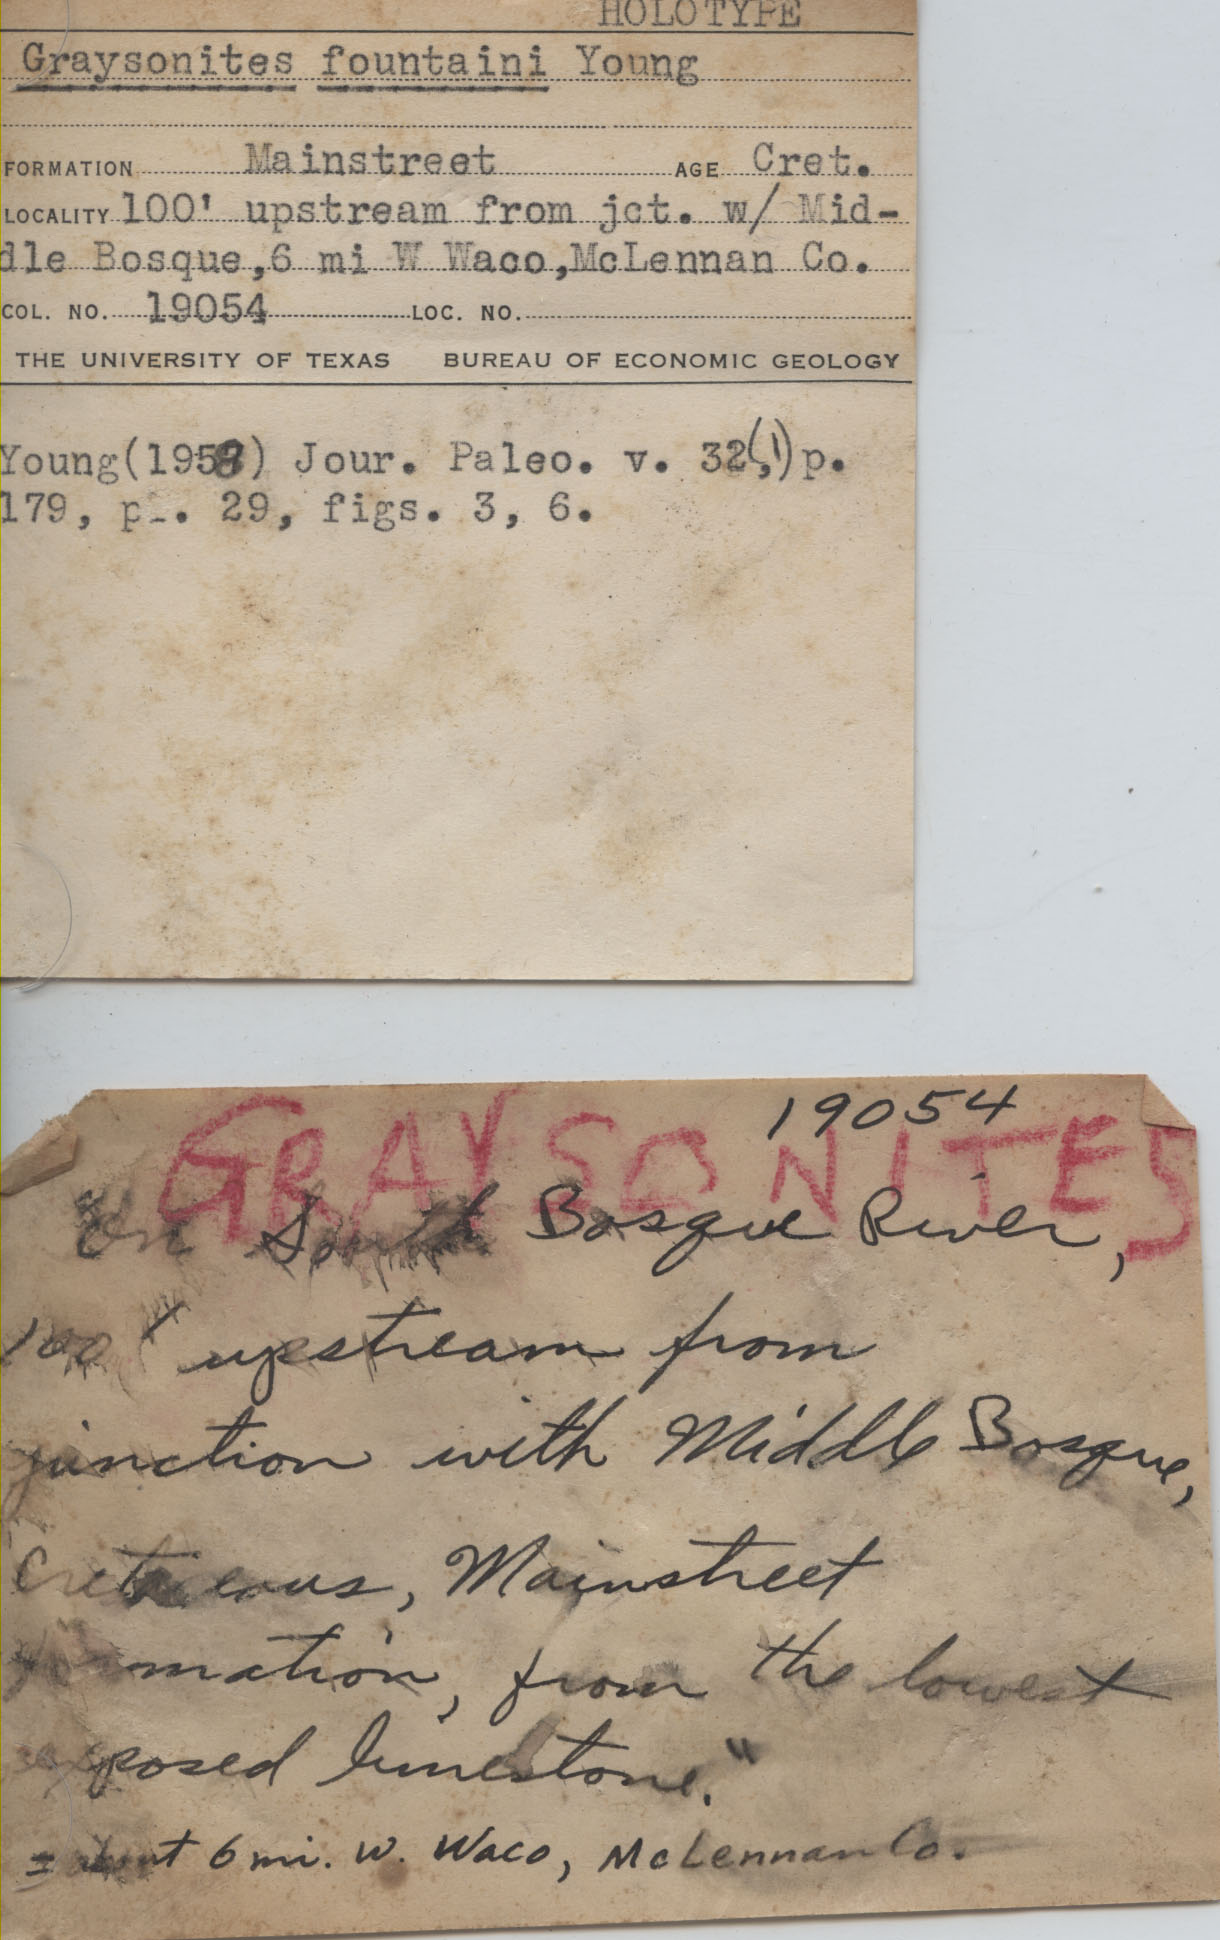 HOLOTYPE
Graysonites fountaini Young
FORMATION Mainstreet AGE Cret.
LOCALITY 100' upstream from jct. w/ Mid-
dle Bosque, 6 mi W Waco, McLennan Co.
COL. NO. 19054 LOC. NO.
THE UNIVERSITY OF TEXAS BUREAU OF ECONOMIC GEOLOGY
Young(1958) Jour. Paleo. v. 32(1), p.
179, pl. 29, figs. 3, 6.
19054
GRAYSONITES
"On South Bosque River,
100' upstream from
junction with Middle Bosque,
Cretaceous, Mainstreet
formation, from the lowest
exposed limestone."
= about 6 mi. W. Waco, McLennan Co.